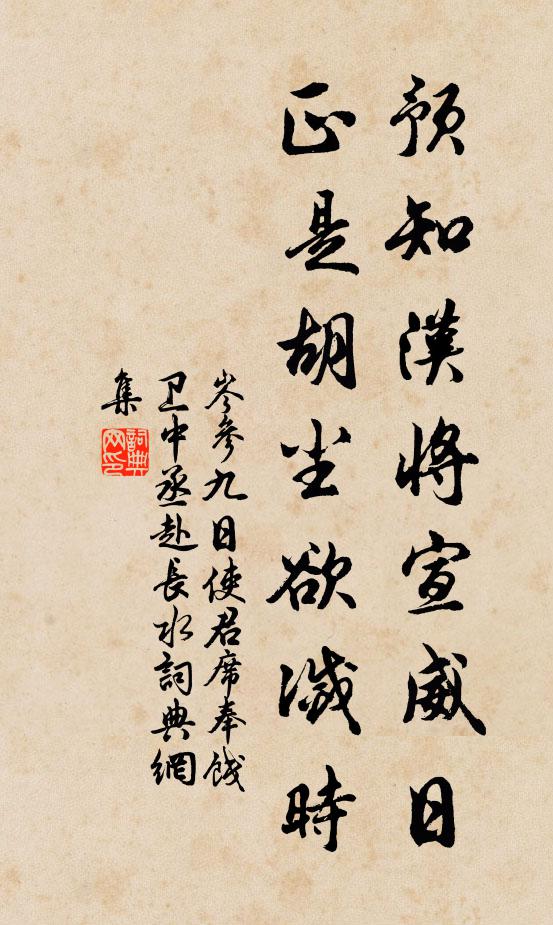 預知漢將宣威日
正是胡尘欲滅時
岑參九日使君席奉餞
卫中丞赴長水詞典網
集
詞典網印